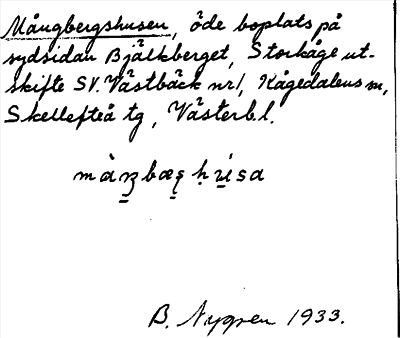 Mångbergshusen, öde boplats på
sydsidan Bjälkberget, Storkåge ut-
skifte SV. Västbäck nr 1, Kågedalens sn,
Skellefteå tg, Västerb.l.
B. Nygren 1933.